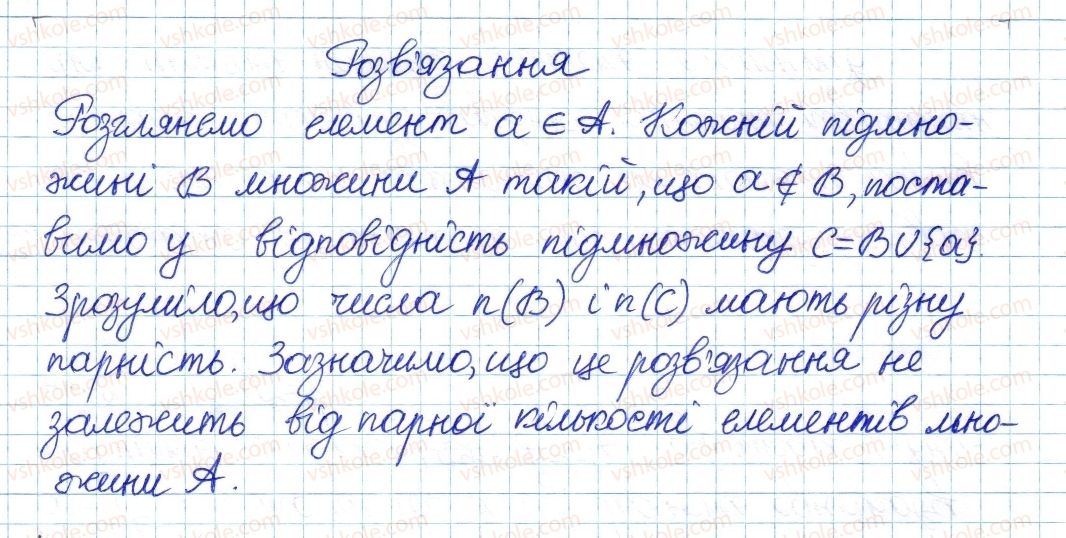 Розв'язання
Розглянемо елемент a ∈ A. Кожній підмно-
жині B множини A такій, що a ∉ B, поста-
вимо у відповідність підмножину C=B∪{a}.
Зрозуміло, що числа n(B) і n(C) мають різну
парність. Зазначимо, що це розв'язання не
залежить від парної кількості елементів мно-
жини A.